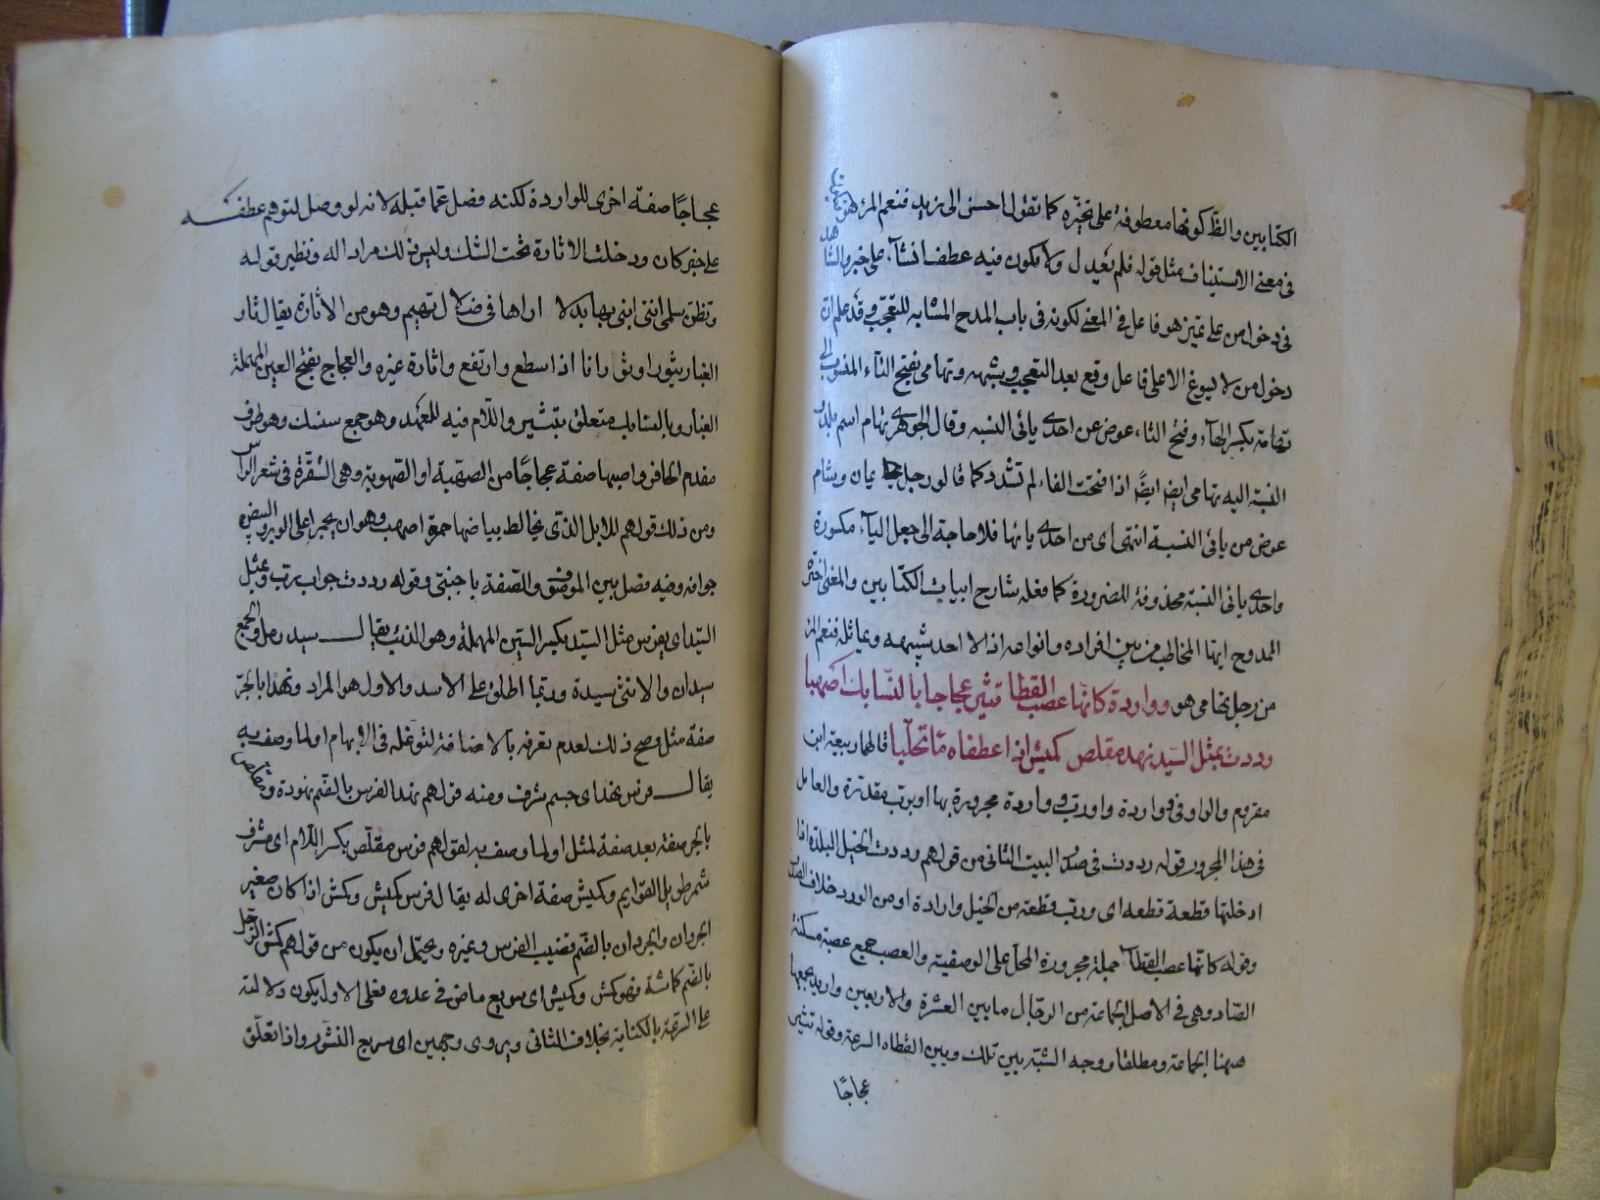 الكتابين والظ كونها معطوفة على تخيره كما تقول احسن الى زيد فنعم المرء هو
فى معنى الاستيناف مثل قوله فلم يعدل ولا يكون فيه عطف انشاء على خبر والشاهد
فى دخول من على تميز هو فاعل فى المعنى لكونه فى باب المدح المشابه للتعجب وقد علم ان
دخول من لا يسوغ الا على فاعل وقع بعد التعجب وشبهه وتهامى بفتح التاء المنسوب الى
تهامة بكسر الهاء وفتح التاء عوض عن احدى يائى النسبة وقال الجوهرى تهام اسم بلد و
النسبة اليه تهامى ايضا اذا فتحت التاء لم تشدد كما قالو رجل يمان وشام
عوض من يائى النسبة انتهى اى من احدى يائها فلا حاجة الى جعل الياء مكسورة
واحدى يائى النسبة محذوفة للضرورة كما فعله شارح ابيات الكتابين والمعنى اختره
الممدوح ايها المخاطب من بين افراده وانواعه اذ لا احد يشبهه ويماثله فنعم المرء
من رجل تهامى هو وواردة كانها عصب القطا تثير عجاجا بالسنابك اصهبا
رددت بمثل السيد نهد مقلص كميش اذا عطفاه ماء تحلبا قالهما ربيعة ابن
مقروم والواو فى وواردة واو رب وواردة مجرورة بها او برب مقدرة والعامل
فى هذا المجرور قوله رددت فى صدر البيت الثانى من قولهم رددت الخيل البلدة اذا
ادخلتها قطعة قطعة اى ورب قطعة من الخيل واردة او من الورود خلاف الصدر
وقوله كانها عصب القطا جملة مجرورة المحل على الوصفية والعصب جمع عصبة مسكنة
الصاد وهى فى الاصل الجماعة من الرجال ما بين العشرة والاربعين واريد بجمعها
ههنا الجماعة ومطلقا ووجه الشبه بين تلك وبين القطاه السرعة وقوله تثير
عجاجا
عجاجا صفة اخرى للواردة لكنه فصل عما قبله لانه لو وصل لتوهم عطفه
على خبر كان ودخلت الاثارة تحت الشك وليس ذلك مرادا له ونظير قوله
وتظن سلمى اننى ابغى بها بدلا اراها فى ضلال تهيم وهو من الاثارة يقال ثار
الغبار يثور اذا سطع وارتفع واثارة غيره والعجاج بفتح العين المهملة
الغبار وبالسنابك متعلق بتثير واللام فيه للعهد وهو جمع سنبك وهو طرف
مقدم الحافر واصهبا صفة عجاجا من الصهبة او الصهوبة وهى الشقرة فى شعر الراس
ومن ذلك قولهم للابل الذى يخالط بياضها حمرة اصهب وهو ان يحمر اعلى الوبر وابيض
جوافه وفيه فصل بين الموصوف والصفة باجنبى وقوله رددت جواب رب وبمثل
السيد اى بفرس مثل السيد بكسر السين المهملة وهو الذئب يقال سيد رمل والجمع
سيدان والانثى سيدة وربما اطلق على الاسد والاول هو المراد ونهد بالجر
صفة مثل وصح ذلك لعدم تعرفه بالاضافة لتوغله فى الابهام او لما وصف به
يقال فرس نهد اى جسيم مشرف ومنه قولهم نهد الفرس بالضم نهودة ومقلص
بالجر صفة بعد صفة لمثل او لما وصف به لقولهم فرس مقلص بكسر اللام اى مشرف
مشمر طويل القوايم وكميش صفة اخرى له يقال فرس كميش وكمش اذا كان صغير
الجردان والجردان بالضم قضيب الفرس وغيره ويحتمل ان يكون من قولهم كمش الرجل
بالضم كماشة فهو كمش وكميش اى سريع ماض فى عدوه فعلى الاول يكون دلالته
على السرعة بالكناية بخلاف الثانى ويروى وجهين اى سريع النشور واذا تعلق